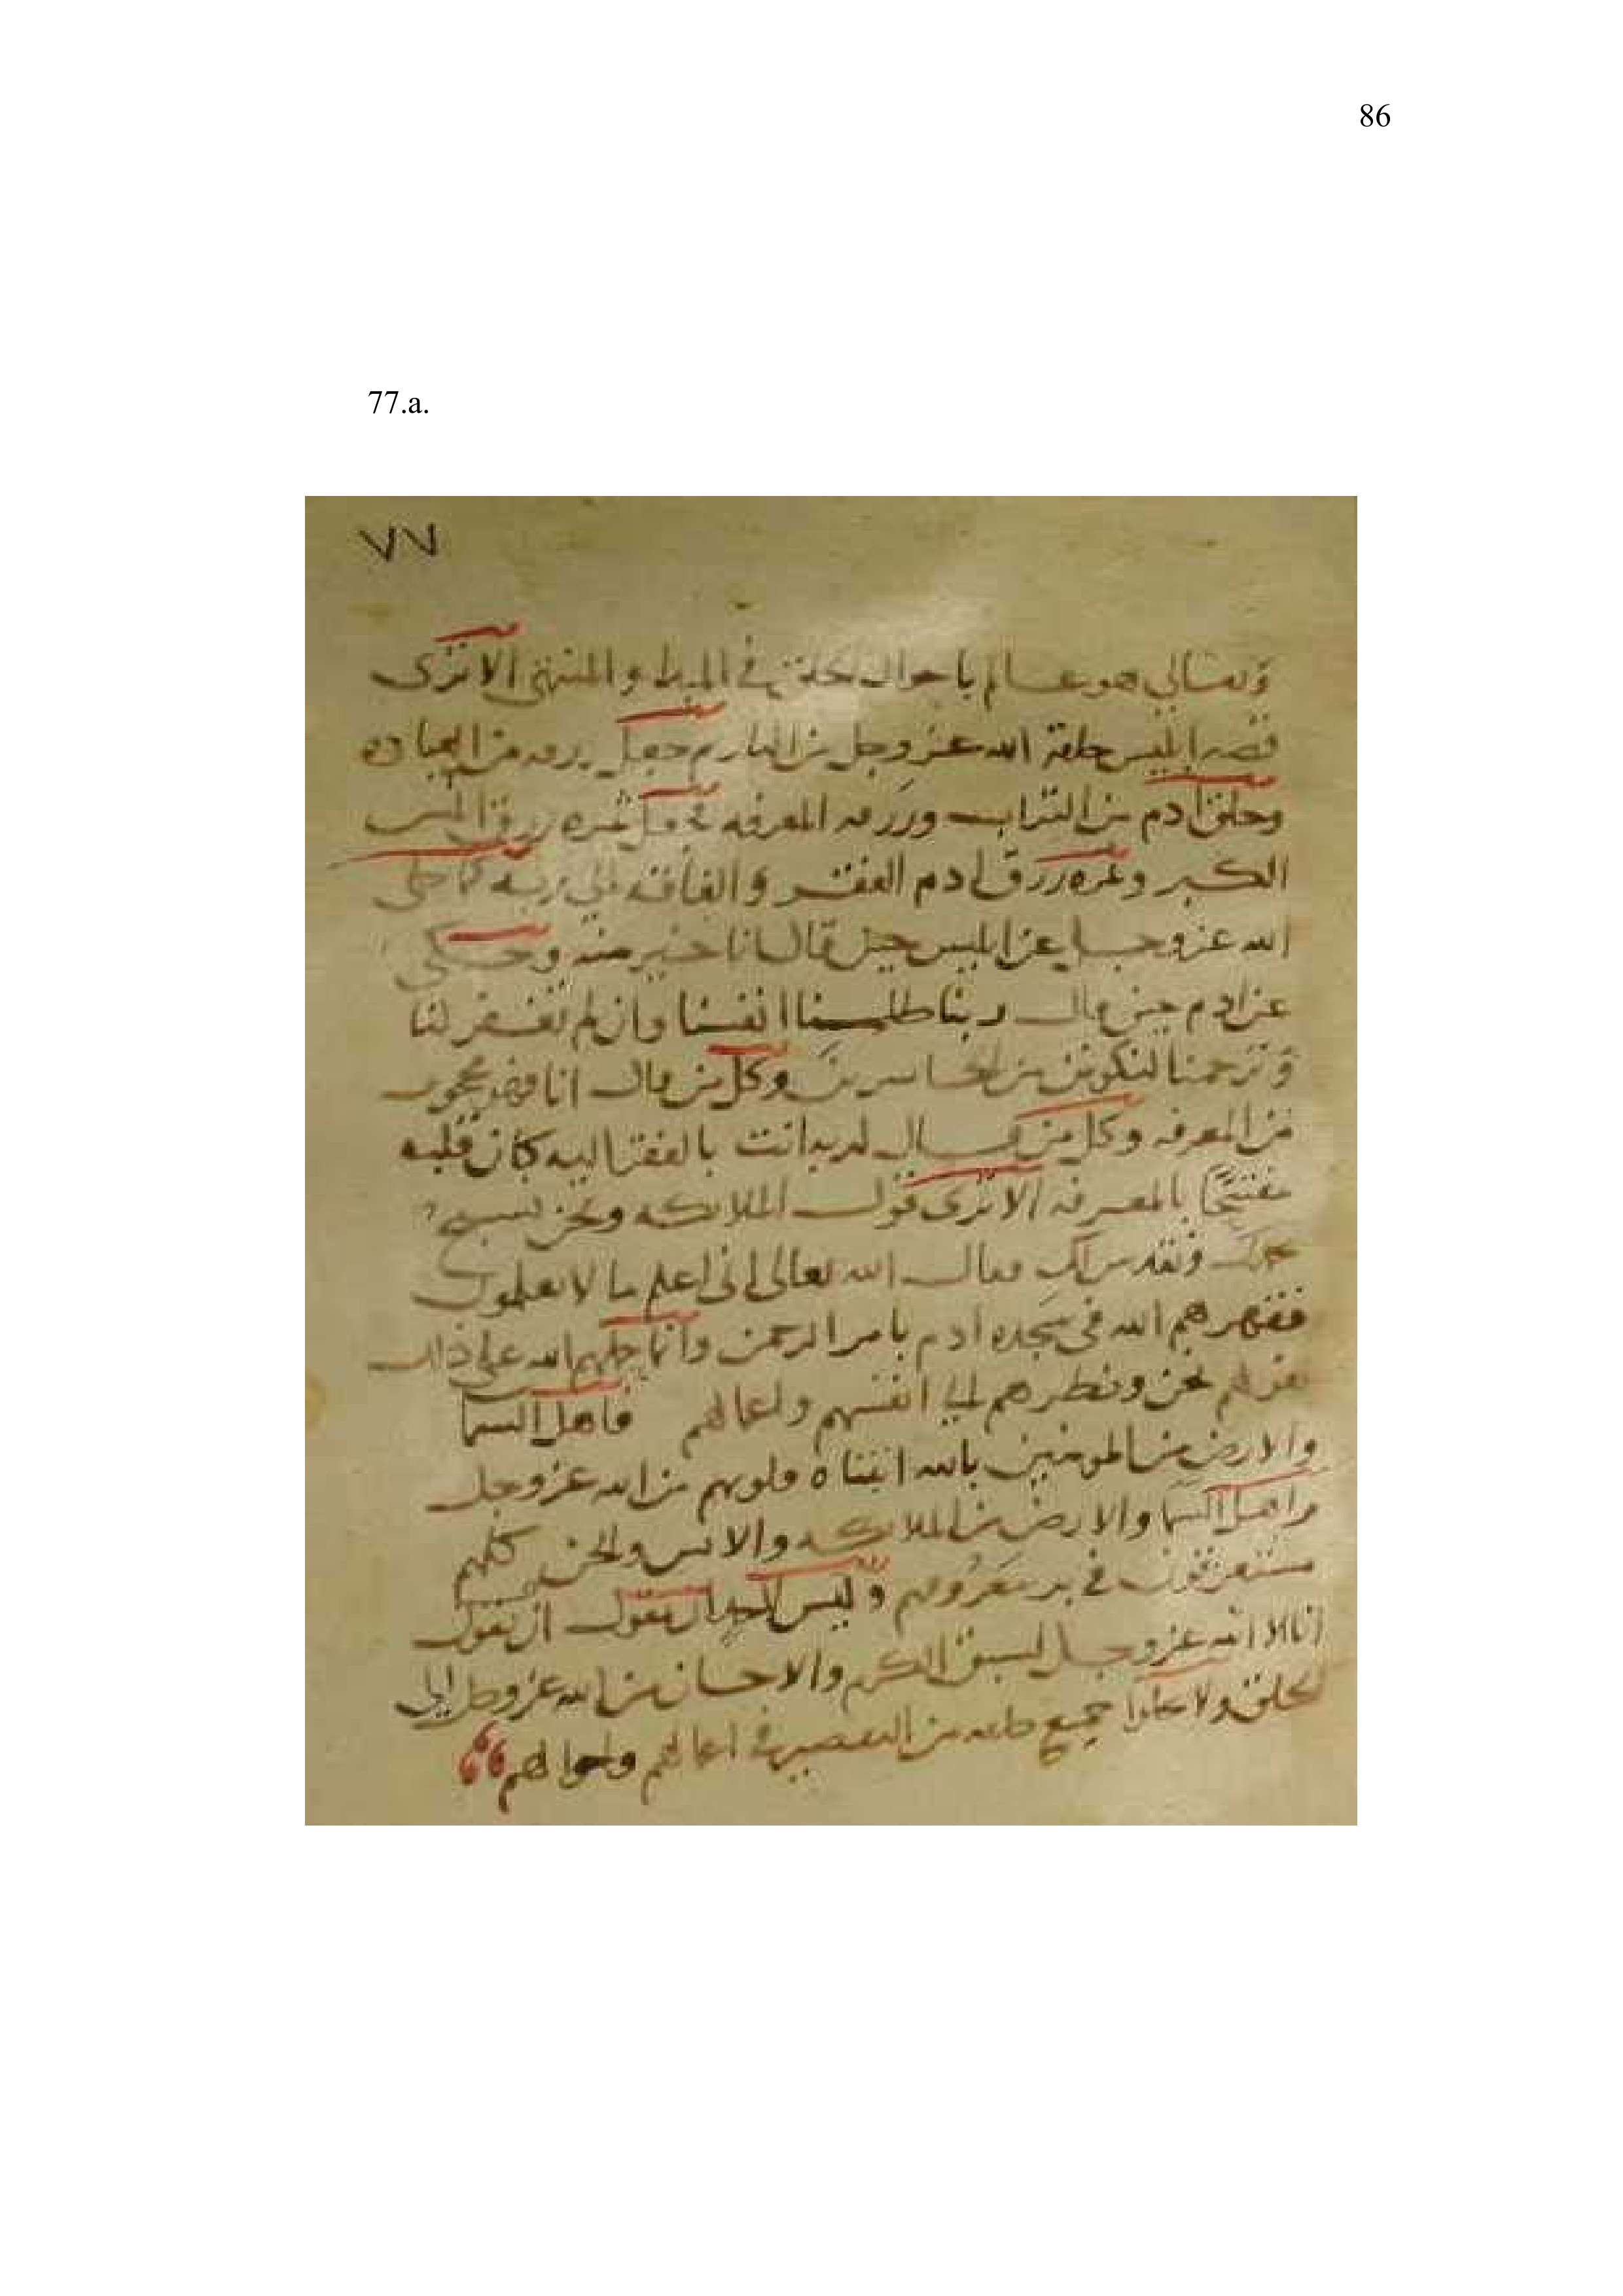 86
77.a.
٧٧
وتعالى هو عالم باحوال الخلق في المبدا والمنتهى الا ترى
قصه ابليس خلقه الله عز وجل من النار ثم جعل رزقه من العباده
وخلق ادم من التراب ورزقه المعرفه فجعل ثمره رزق ابليس
الكبر وثمره رزق ادم الفقر والفاقه الى ربه كما حكى
الله عز وجل عن ابليس حين قال انا خير منه وحكى
عن ادم حين قال ربنا ظلمنا انفسنا وان لم تغفر لنا
وترحمنا لنكونن من الخاسرين وكل من قال انا فهو محجوب
من المعرفه وكل من قال لربه انت بالفقر اليه كان قلبه
مفتحا بالمعرفه الا ترى قول الملائكه ونحن نسبح
بحمدك ونقدس لك فقال الله تعالى انى اعلم ما لا تعلمون
فقهرهم الله فى سجده ادم بامر الرحمن وانما حملهم الله على ذلك
بقولهم نحن ونظرهم الى انفسهم واعمالهم فاهل السما
والارض من المومنين بالله قلوبهم من الله عز وجل
اهل السما والارض من الملائكه والانس والجن كلهم
مستغرقون في بر معروفه وليس لاحد ان يقول ان يقول
انا الا الله عز وجل لسبق الكرم والاحسان من الله عز وجل الى
الخلق ولا جميع خلقه من التقصير في اعمالهم واحوالهم